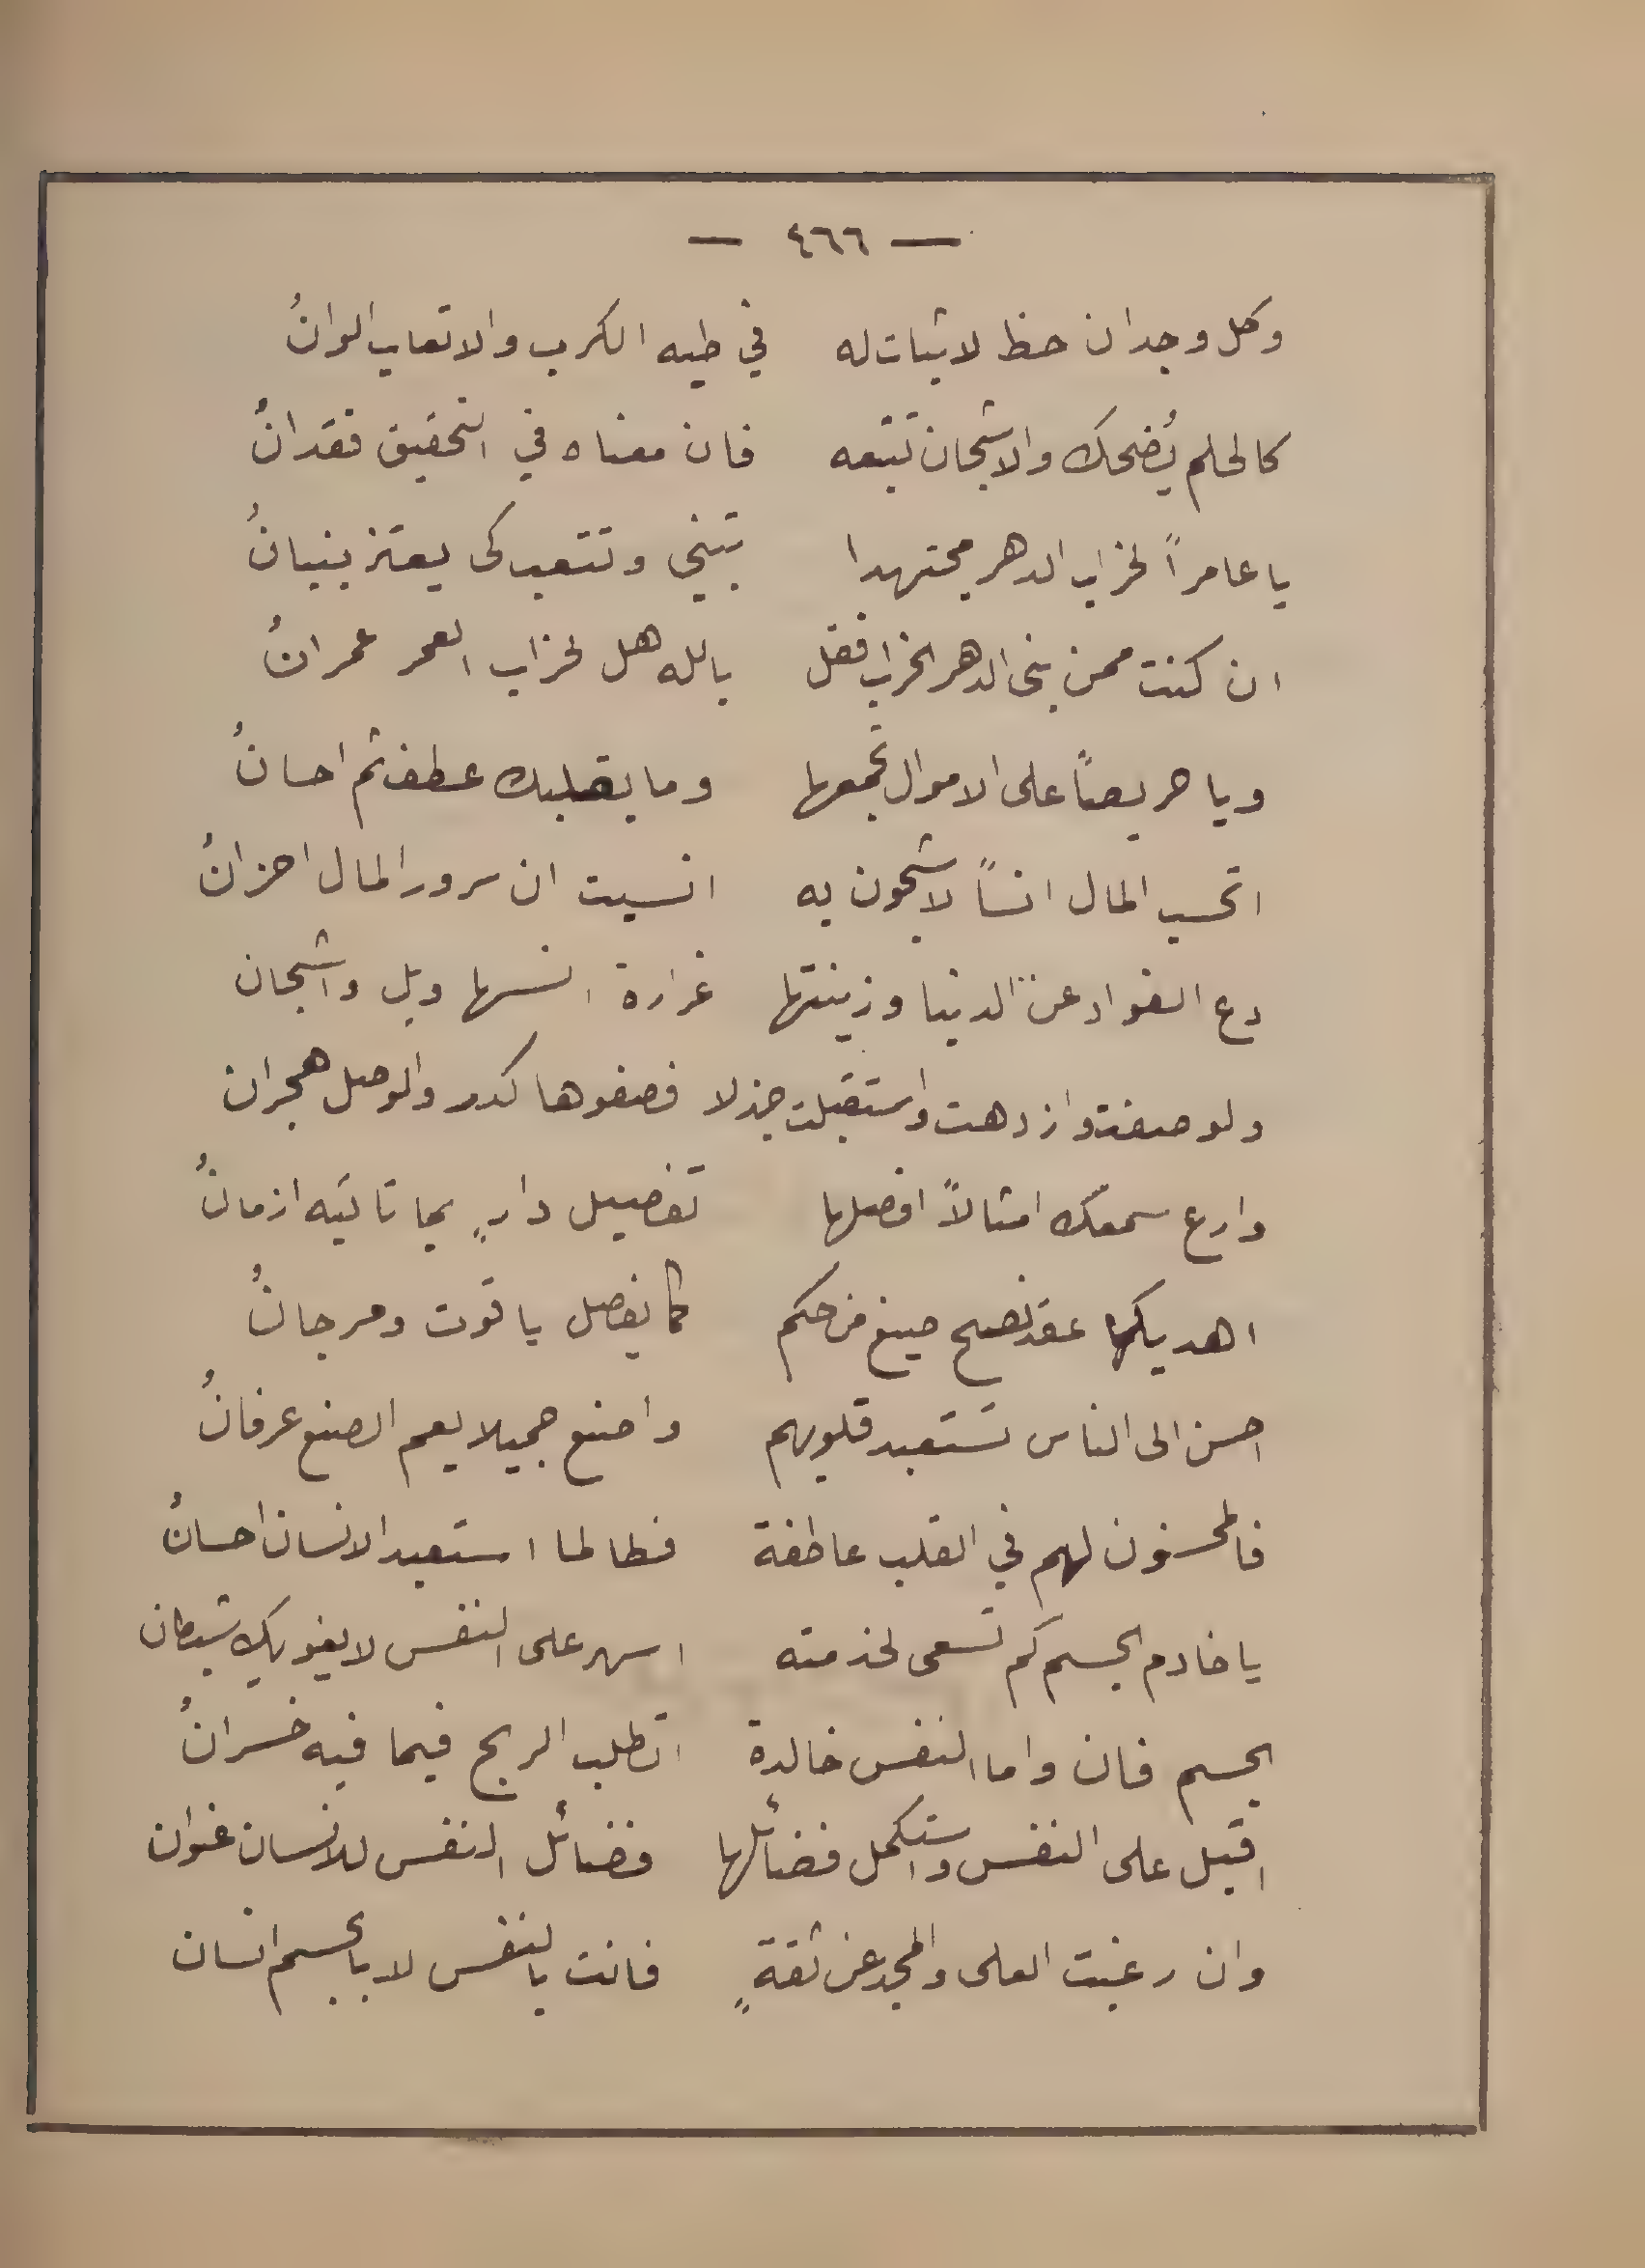 — ٤٦٦ —
وكل وجدان حظ لا ثبات له في طيه الكرب والاتعاب الوانُ
كالحلم يُضحك والاشجان تتبعه فان معناه في التحقيق فقدانُ
يا عامراً لخراب الدهر مجتهدا تبني وتتعب كى يعتز بنيانُ
ان كنت ممن بنى الدهر الخراب فقل بالله هل لخراب العمر عمرانُ
ويا حريصاً على الاموال تجمعها وما بقلبك عطف ثم احسانُ
اتحسب المال انساً لا شجون به انسيت ان سرور المال احزانُ
دع الفواد عن الدنيا وزينتها غرارة انسها ويل واشجان
ولو صفت وازدهت واستقبلت جذلا فصفوها كدر والوصل هجران
وارع سمعك امثالاً افصلها تفصيل دارٍ بما تاتيه ازمانُ
اهديكها عقد نصح صيغ من حكم كما يفصل ياقوت ومرجانُ
احسن الى الناس تستعبد قلوبهم واصنع جميلا يعم الصنع عرفانُ
فالمحسنون لهم في القلب عاطفة فطالما استعبد الانسان احسانُ
يا خادم الجسم كم تسعى لخدمته اسهر على النفس لا يغويك شيطان
الجسم فان واما النفس خالدة اتطلب الربح فيما فيه خسرانُ
اقبل على النفس واستكمل فضائلها فضائل النفس للانسان عنوان
وان رغبت العلى والمجد عن ثقةٍ فانت بالنفس لا بالجسم انسان